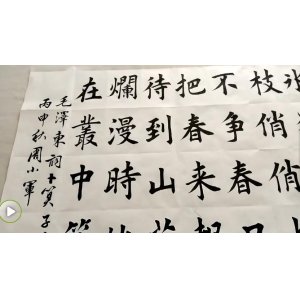 枝俏俏
不争春
把春来
待到山
爛漫時
在叢中
毛澤東詞卜算子
丙申秋周小軍